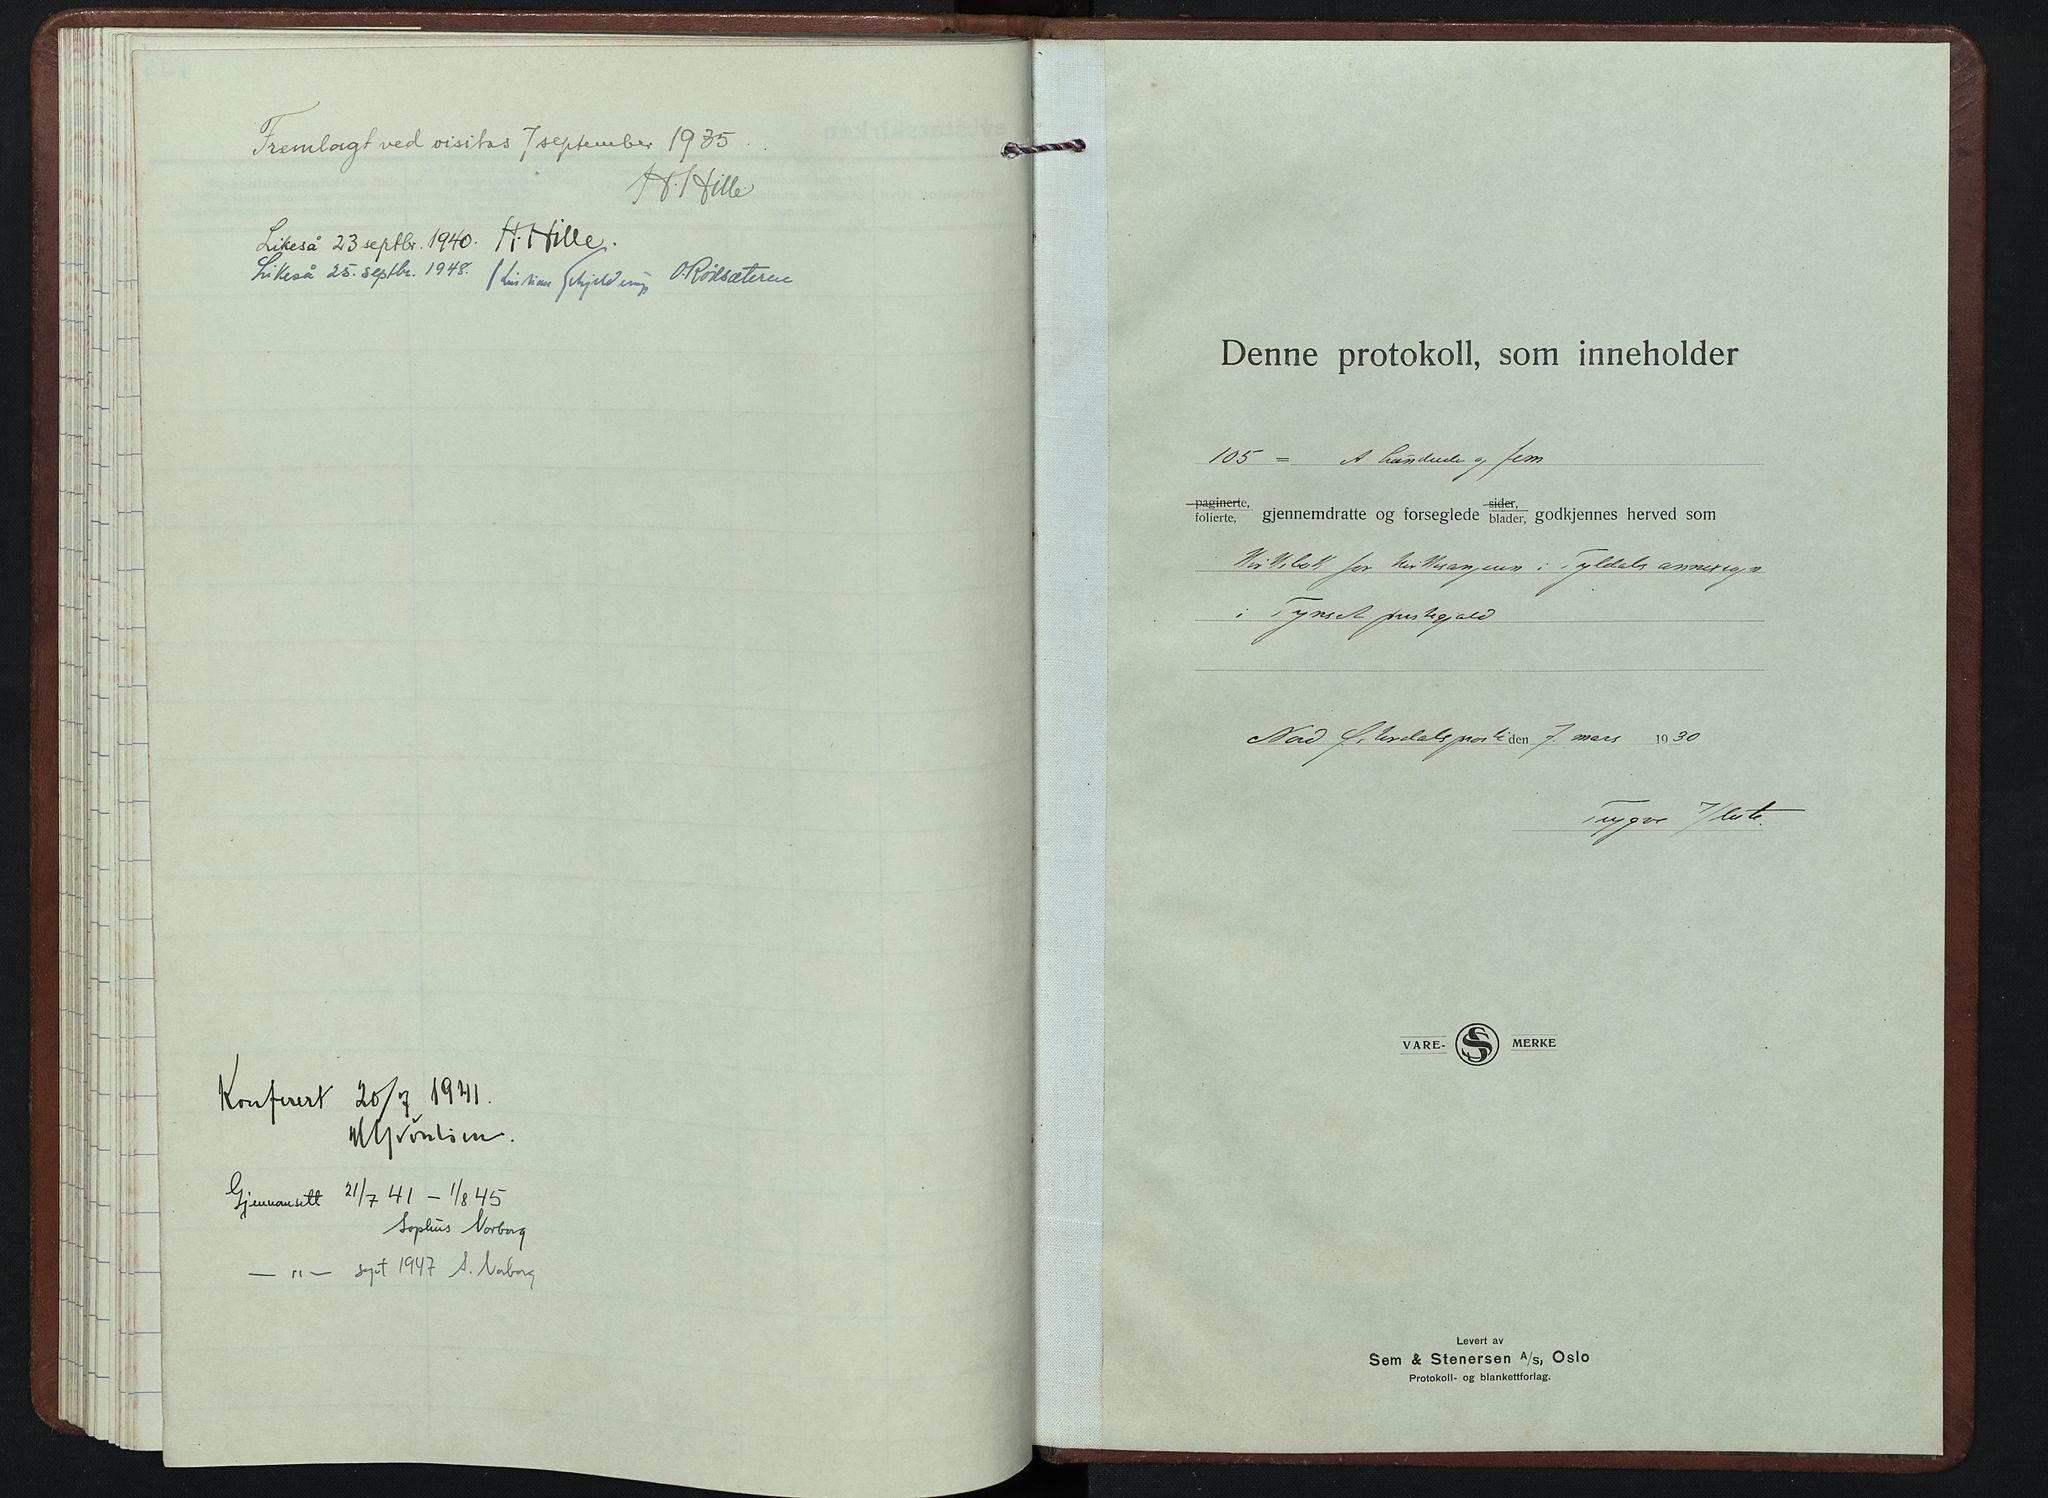 Fremlagt ved visitas 7 september 1935.
H. Hille
Likeså 23 septbr. 1940. H. Hille.
Likeså 25. septbr. 1948. Kristian Schjelderup O. Rødsæteren
Konferert 20/7 1941.
Gjennemsett 21/7 41 – 1/8 45
Sophus Norborg
— " — sept 1947 S. Norborg
Denne protokoll, som inneholder
105 = et hundrede og fem
paginerte,
folierte, gjennemdratte og forseglede sider,
blader, godkjennes herved som
Kirkebok for kirkesangeren i Tyldals annekssogn
i Tynset prestegjeld
Nord Østerdals prosti den 7. mars 1930
Trygve
VARE- S MERKE
Levert av
Sem & Stenersen A/s, Oslo
Protokoll- og blankettforlag.